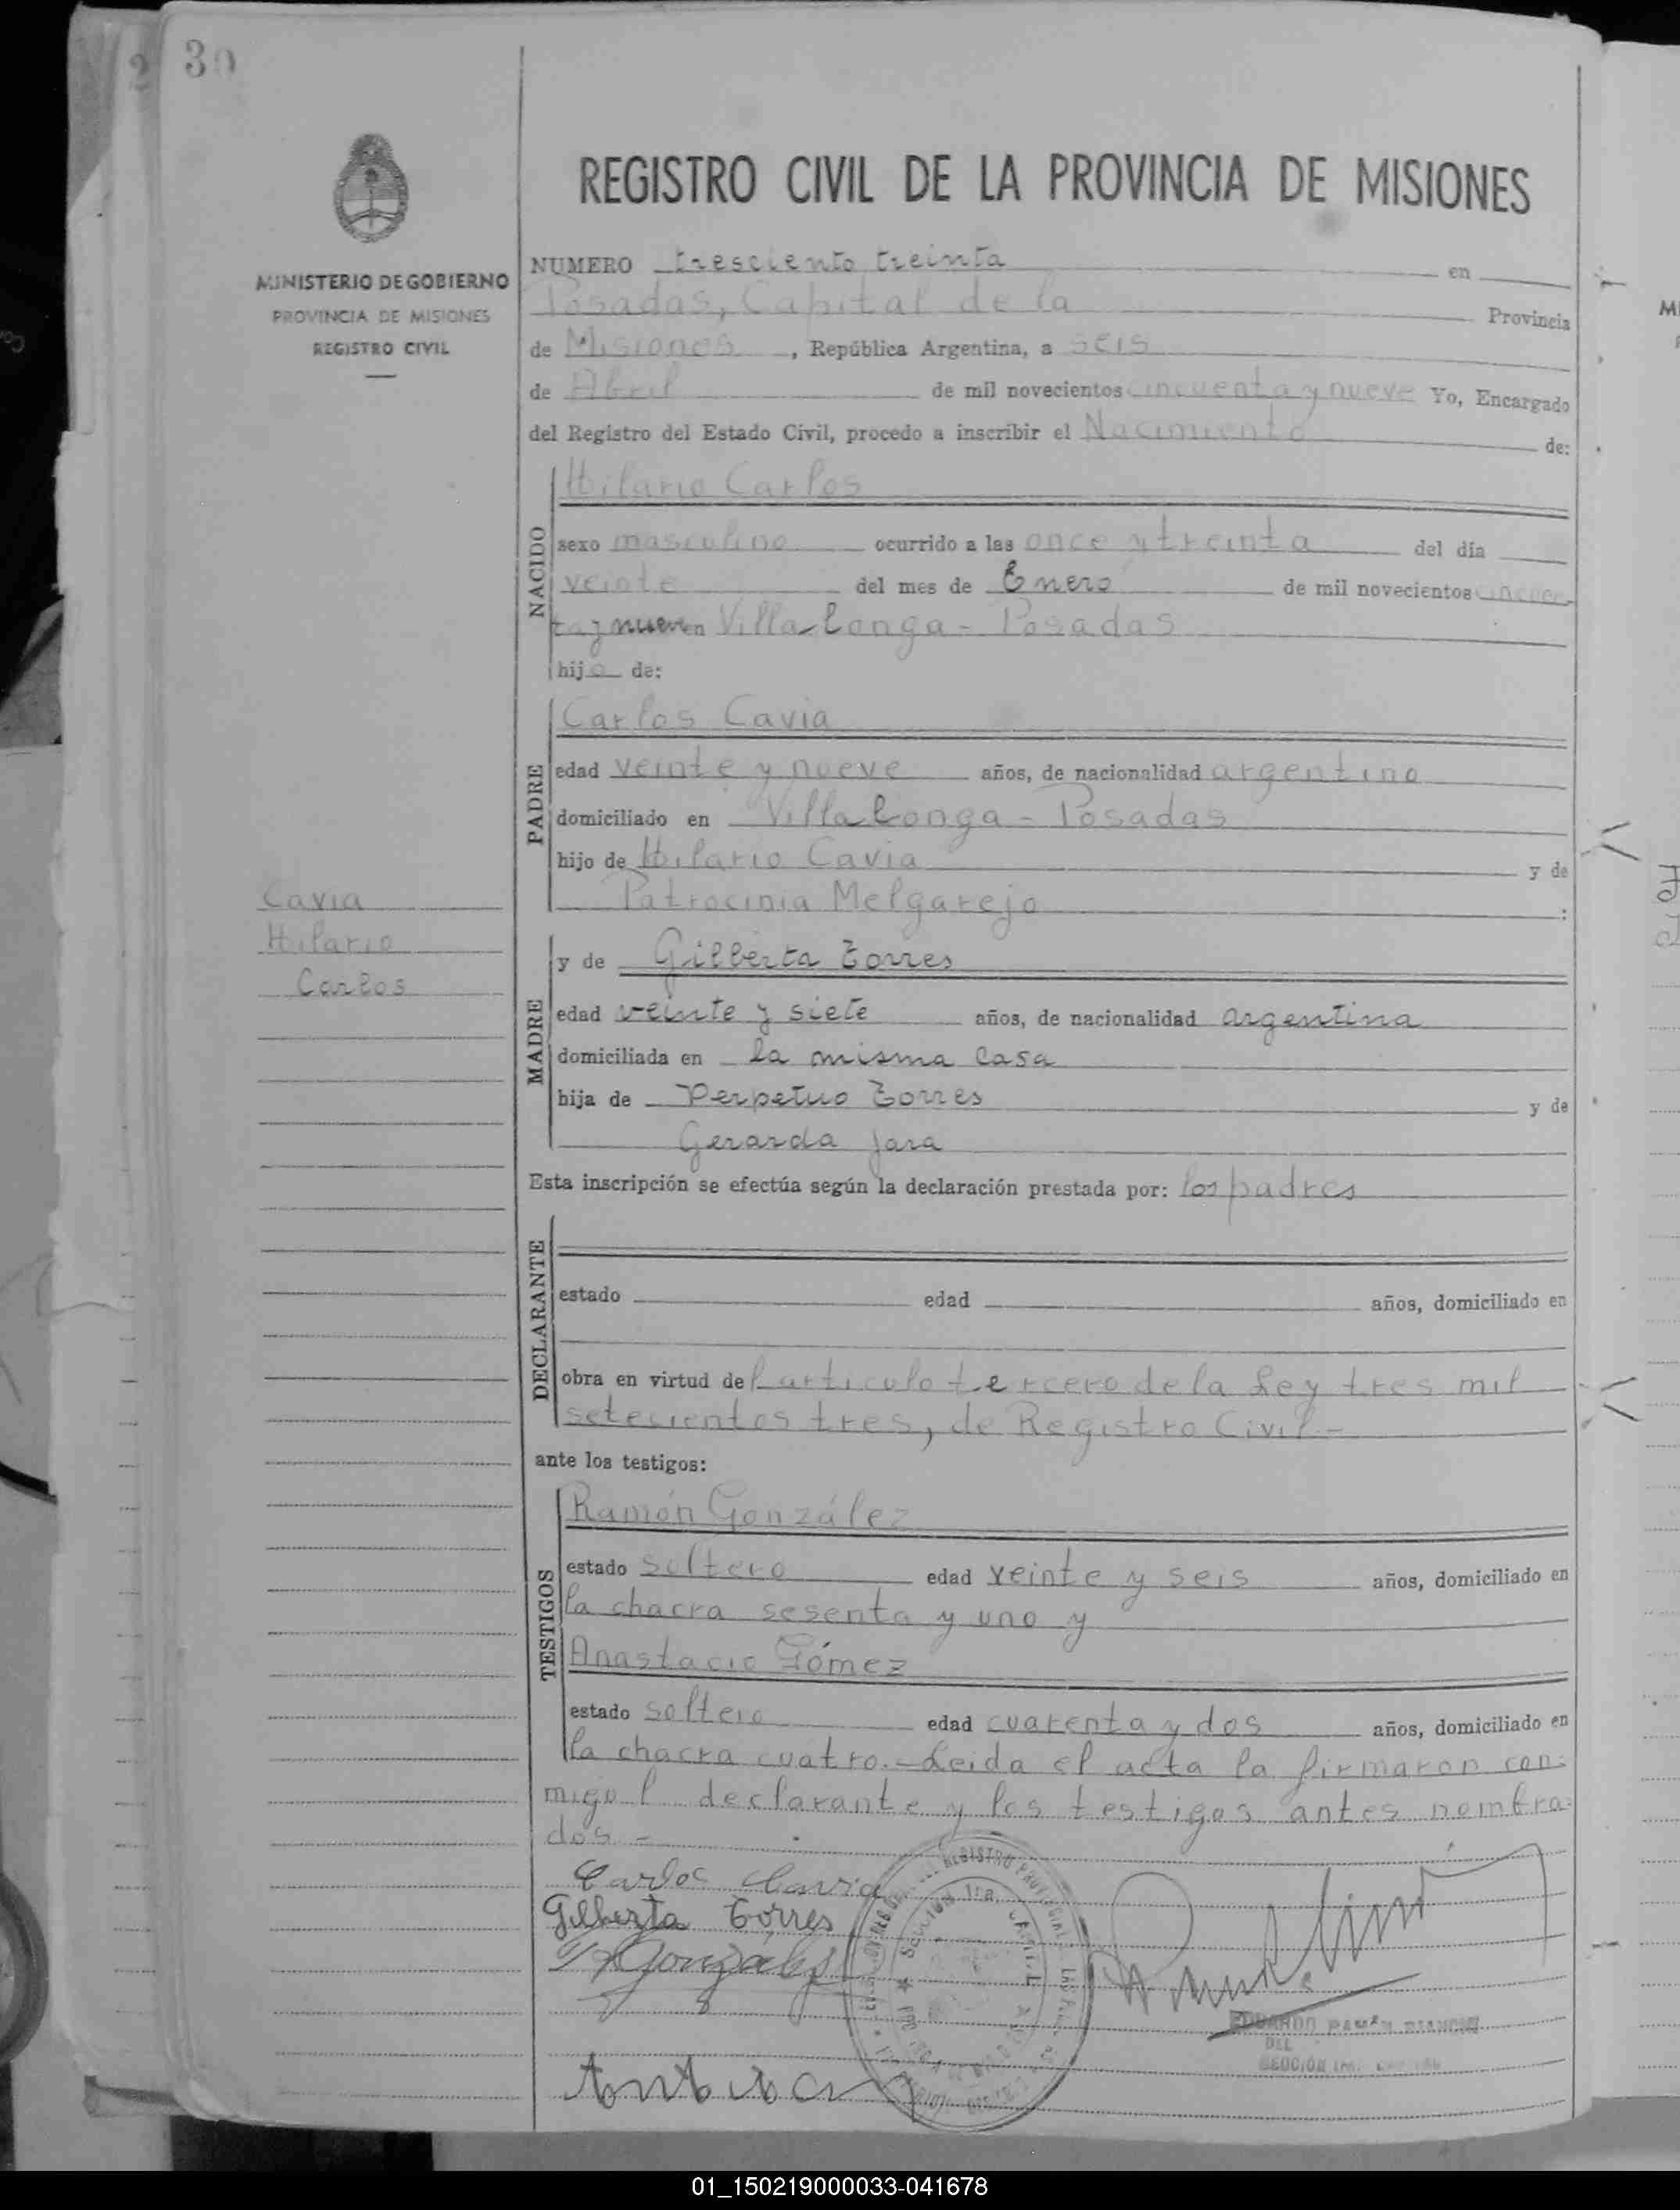 30
MINISTERIO DE GOBIERNO
PROVINCIA DE MISIONES
REGISTRO CIVIL
REGISTRO CIVIL DE LA PROVINCIA DE MISIONES
NUMERO tresciento treinta en
Posadas, Capital de la Provincia
de Misiones, República Argentina, a seis
de Abril de mil novecientos cincuenta y nueve Yo, Encargado
del Registro del Estado Civil, procedo a inscribir el Nacimiento de:
NACIDO
Hilario Carlos
sexo masculino ocurrido a las once y treinta del día
veinte del mes de Enero de mil novecientos cincuen-
ta y nueve en Villa Longa - Posadas
hijo de:
PADRE
Carlos Cavia
edad veinte y nueve años, de nacionalidad argentino
domiciliado en Villa Longa - Posadas
hijo de Hilario Cavia y de
Patrocinia Melgarejo :
Cavia
Hilario
Carlos
MADRE
y de Gilberta Torres
edad veinte y siete años, de nacionalidad argentina
domiciliada en la misma casa
hija de Perpetuo Torres y de
Gerarda Jara
Esta inscripción se efectúa según la declaración prestada por: los padres
DECLARANTE
estado edad años, domiciliado en
obra en virtud del articulo tercero de la Ley tres mil
setecientos tres, de Registro Civil -
ante los testigos:
TESTIGOS
Ramón González
estado soltero edad veinte y seis años, domiciliado en
la chacra sesenta y uno y
Anastacio Gómez
estado soltero edad cuarenta y dos años, domiciliado en
la chacra cuatro.- Leida el acta la firmaron con-
migo l declarante y los testigos antes nombra-
dos -
Carlos Cavia
Gilberta Torres
R Gonzales
01_150219000033-041678